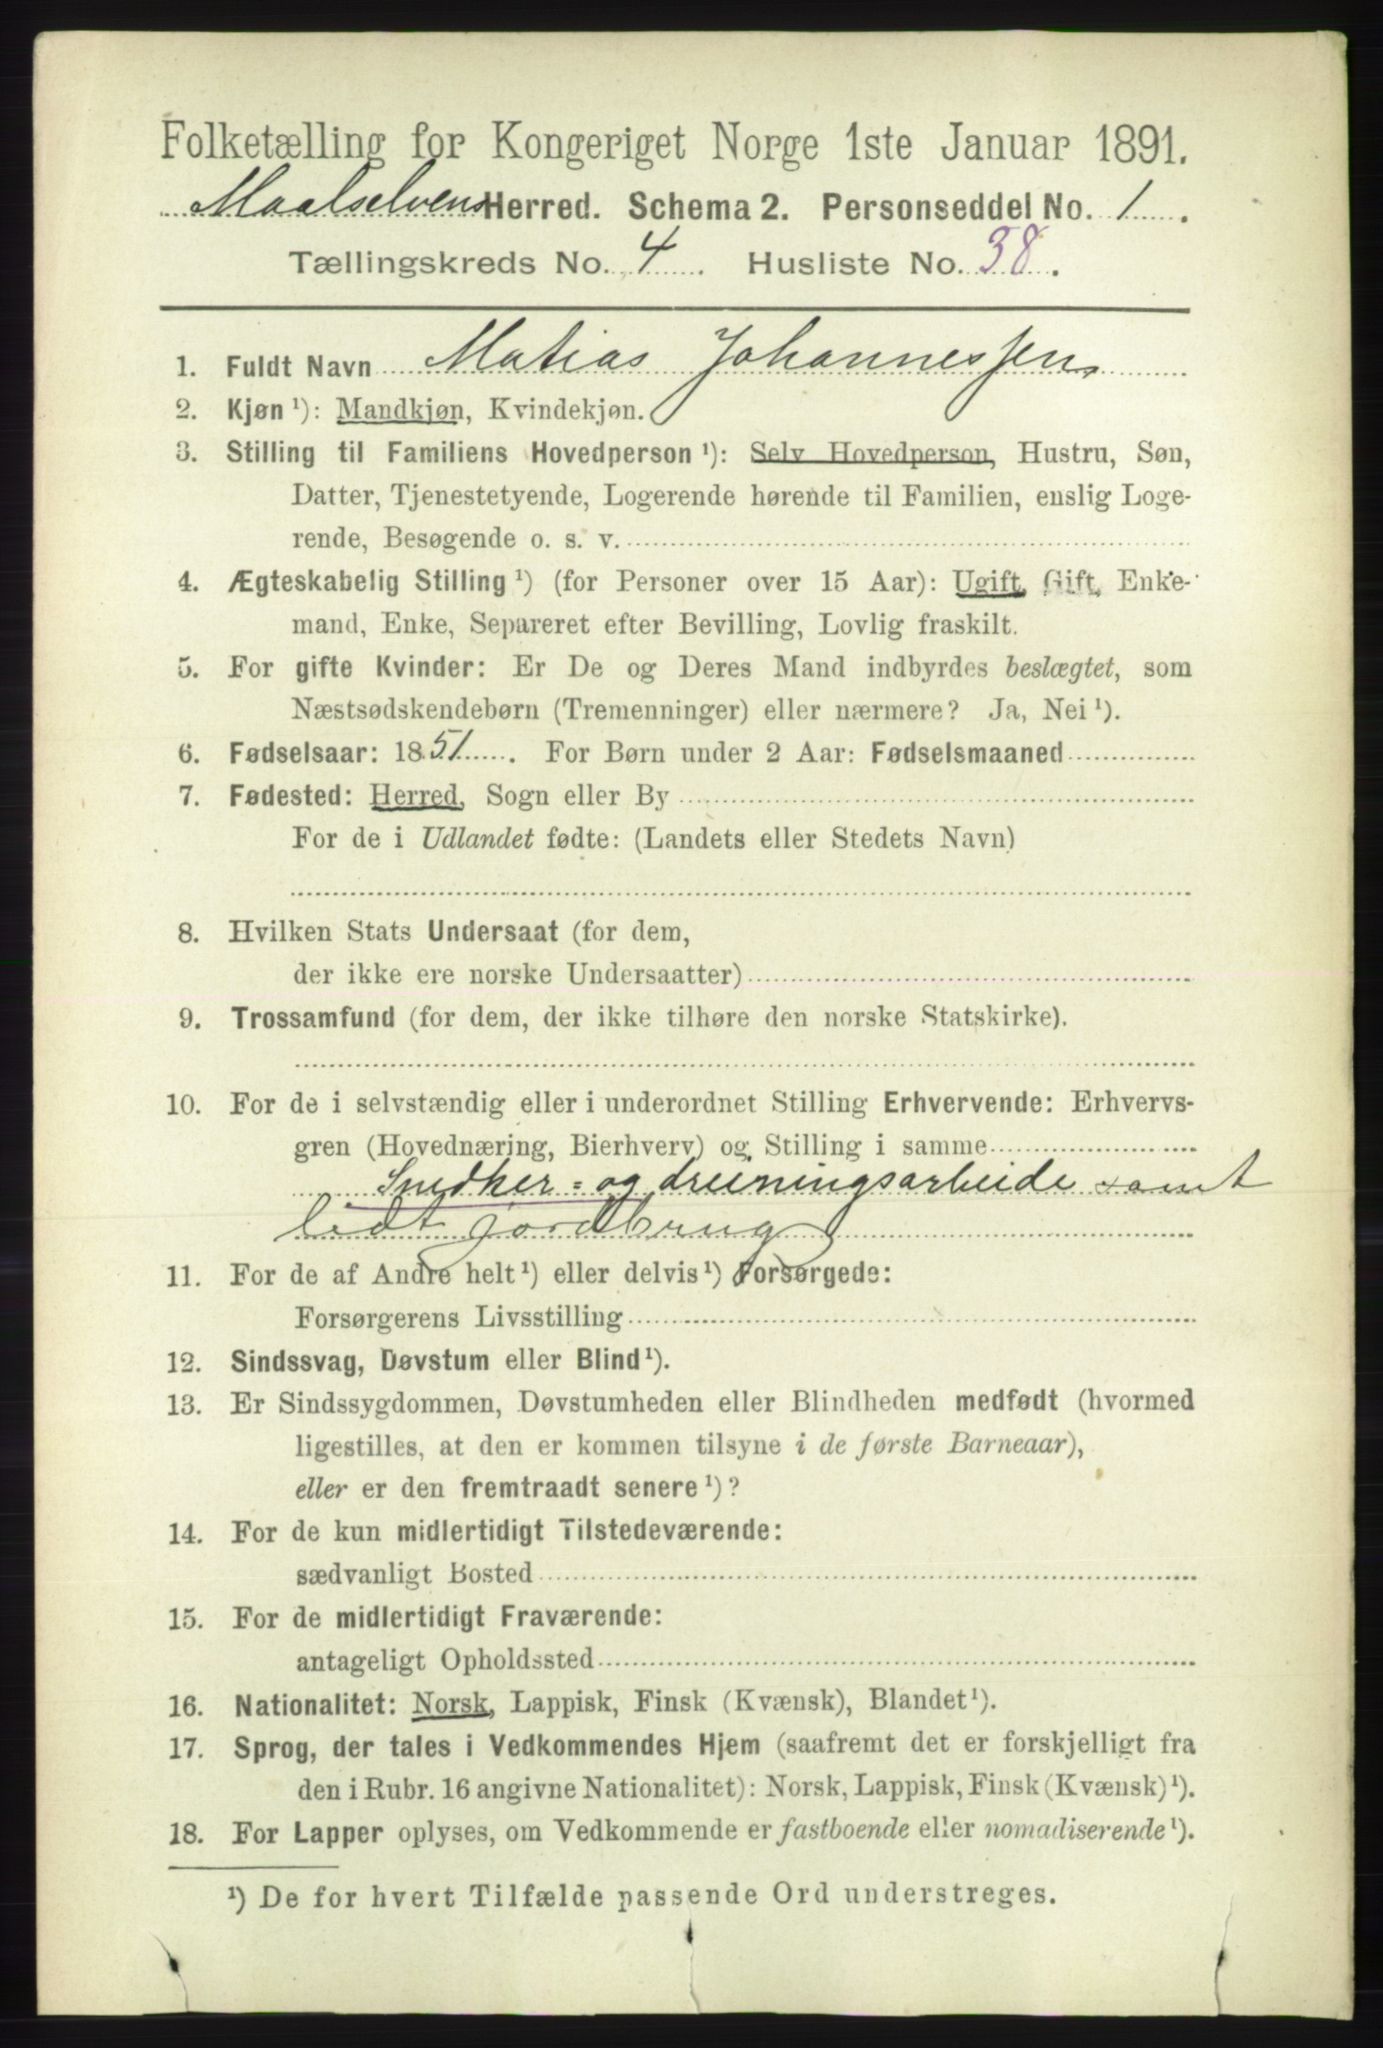 Folketælling for Kongeriget Norge 1ste Januar 1891.
Maalselvens Herred. Schema 2. Personseddel No. 1.
Tællingskreds No. 4. Husliste No. 38.
1. Fuldt Navn Matias Johannessen
2. Kjøn ¹): Mandkjøn, Kvindekjøn.
3. Stilling til Familiens Hovedperson ¹): Selv Hovedperson, Hustru, Søn,
Datter, Tjenestetyende, Logerende hørende til Familien, enslig Loge-
rende, Besøgende o. s. v.
4. Ægteskabelig Stilling ¹) (for Personer over 15 Aar): Ugift, Gift, Enke-
mand, Enke, Separeret efter Bevilling, Lovlig fraskilt.
5. For gifte Kvinder: Er De og Deres Mand indbyrdes beslægtet, som
Næstsødskendebørn (Tremenninger) eller nærmere? Ja, Nei ¹).
6. Fødselsaar: 1851. For Børn under 2 Aar: Fødselsmaaned
7. Fødested: Herred, Sogn eller By
For de i Udlandet fødte: (Landets eller Stedets Navn)
8. Hvilken Stats Undersaat (for dem,
der ikke ere norske Undersaatter)
9. Trossamfund (for dem, der ikke tilhøre den norske Statskirke).
10. For de i selvstændig eller i underordnet Stilling Erhvervende: Erhvervs-
gren (Hovednæring, Bierhverv) og Stilling i samme
Snedker= og dreiningsarbeide samt
lidt jordbrug
11. For de af Andre helt ¹) eller delvis ¹) Forsørgede:
Forsørgerens Livsstilling
12. Sindssvag, Døvstum eller Blind ¹).
13. Er Sindssygdommen, Døvstumheden eller Blindheden medfødt (hvormed
ligestilles, at den er kommen tilsyne i de første Barneaar),
eller er den fremtraadt senere ¹)?
14. For de kun midlertidigt Tilstedeværende:
sædvanligt Bosted
15. For de midlertidigt Fraværende:
antageligt Opholdssted
16. Nationalitet: Norsk, Lappisk, Finsk (Kvænsk), Blandet ¹).
17. Sprog, der tales i Vedkommendes Hjem (saafremt det er forskjelligt fra
den i Rubr. 16 angivne Nationalitet): Norsk, Lappisk, Finsk (Kvænsk) ¹).
18. For Lapper oplyses, om Vedkommende er fastboende eller nomadiserende ¹).
¹) De for hvert Tilfælde passende Ord understreges.